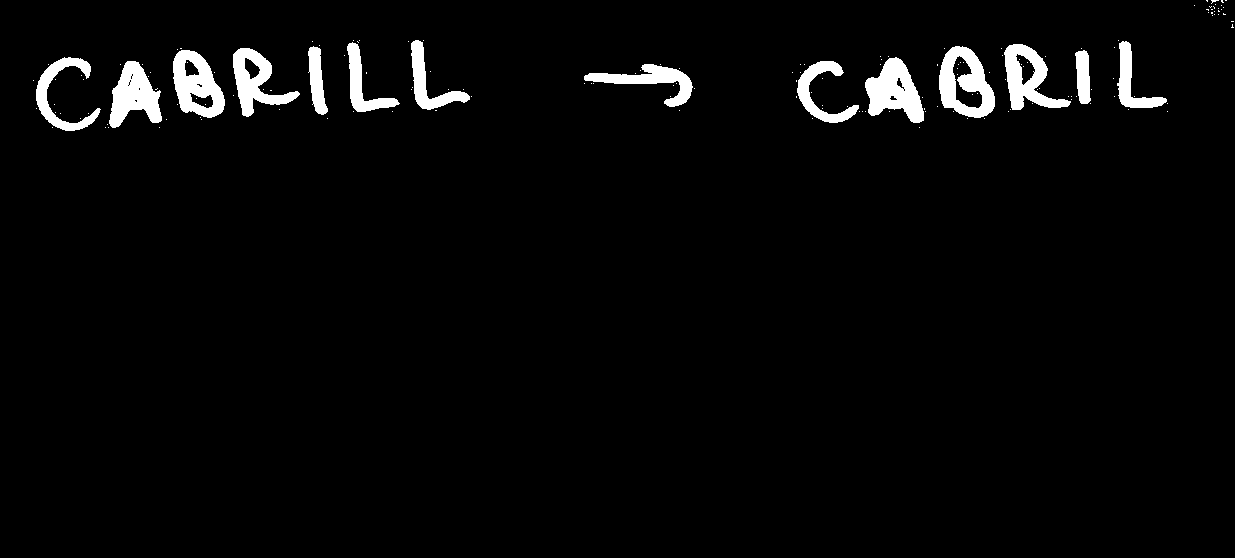 CABRILL → CABRIL